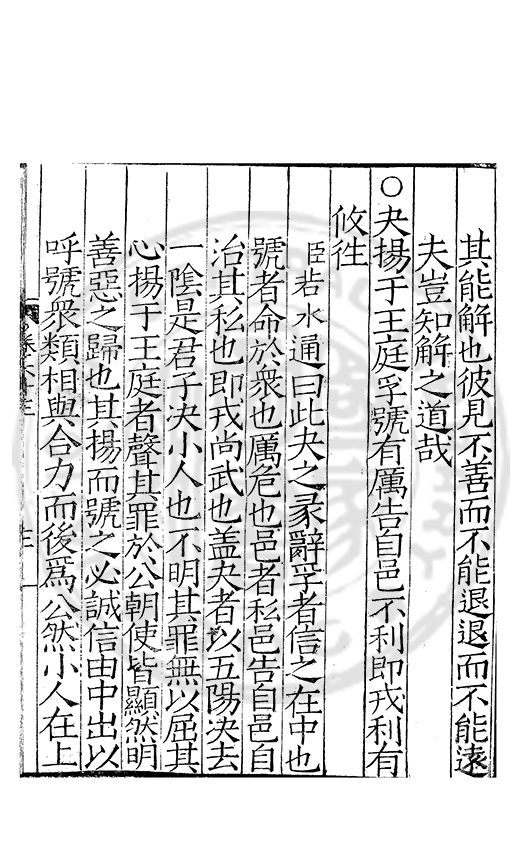 其能解也彼見不善而不能退退而不能遠
夫豈知解之道哉
○夬揚于王庭孚號有厲告自邑不利即戎利有
攸往
臣若水通曰此夬之彖辭孚者信之在中也
號者命於衆也厲危也邑者私邑告自邑自
治其私也即戎尚武也盖夬者以五陽決去
一陰是君子决小人也不明其罪無以屈其
心揚于王庭者聲其罪於公朝使皆顯然明
善惡之歸也其揚而號之必誠信由中出以
呼號衆類相與合力而後爲公然小人在上